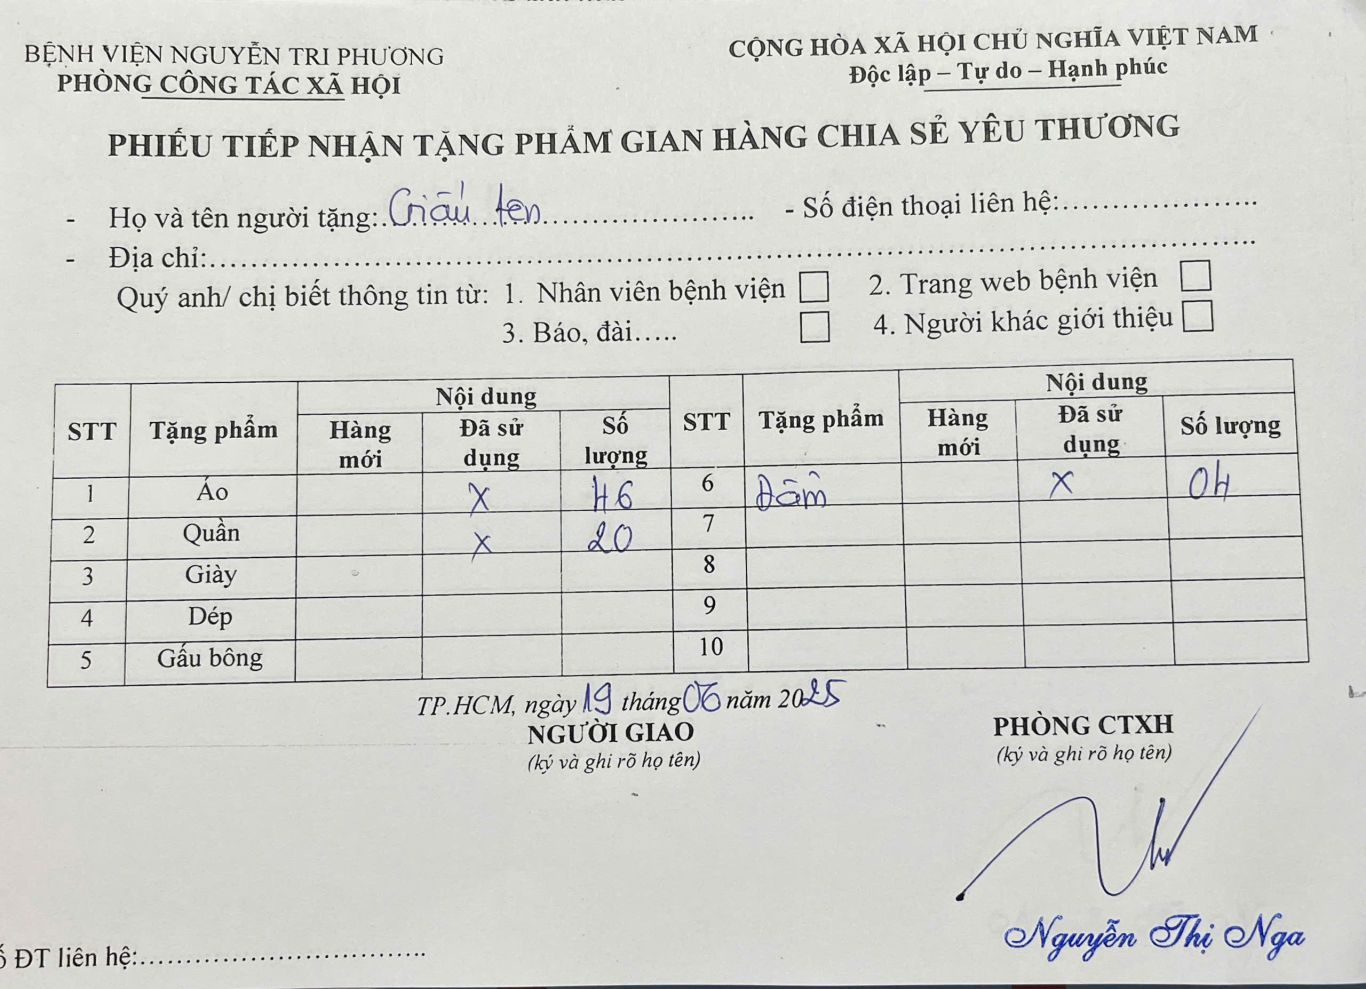 BỆNH VIỆN NGUYỄN TRI PHƯƠNG
PHÒNG CÔNG TÁC XÃ HỘI
CỘNG HÒA XÃ HỘI CHỦ NGHĨA VIỆT NAM
Độc lập – Tự do – Hạnh phúc
PHIẾU TIẾP NHẬN TẶNG PHẨM GIAN HÀNG CHIA SẺ YÊU THƯƠNG
- Họ và tên người tặng: Giấu tên - Số điện thoại liên hệ:
- Địa chỉ:
Quý anh/ chị biết thông tin từ: 1. Nhân viên bệnh viện ☐ 2. Trang web bệnh viện ☐
3. Báo, đài….. ☐ 4. Người khác giới thiệu ☐
STT Tặng phẩm Nội dung STT Tặng phẩm Nội dung
Hàng mới Đã sử dụng Số lượng Hàng mới Đã sử dụng Số lượng
1 Áo X 46 6 Đầm X 04
2 Quần X 20 7
3 Giày 8
4 Dép 9
5 Gấu bông 10
TP.HCM, ngày 19 tháng 06 năm 2025
NGƯỜI GIAO
(ký và ghi rõ họ tên)
PHÒNG CTXH
(ký và ghi rõ họ tên)
Nguyễn Thị Nga
ố ĐT liên hệ: